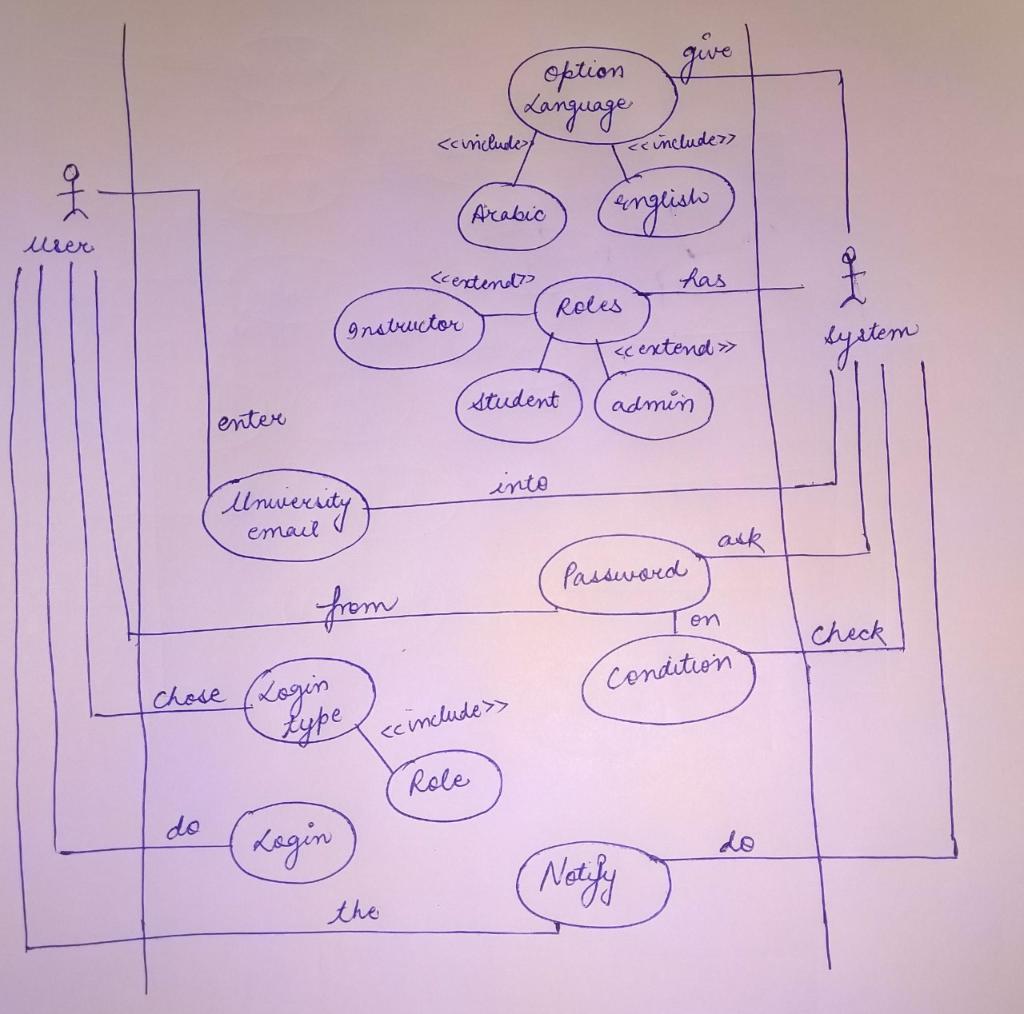 give
Option
Language
<<include>>
<<include>>
Arabic
English
User
<<extend>>
has
Roles
Instructor
System
<<extend>>
Student
admin
enter
into
University
email
ask
Password
from
on
Check
Condition
Chose
Login
type
<<include>>
Role
do
Login
do
Notify
the